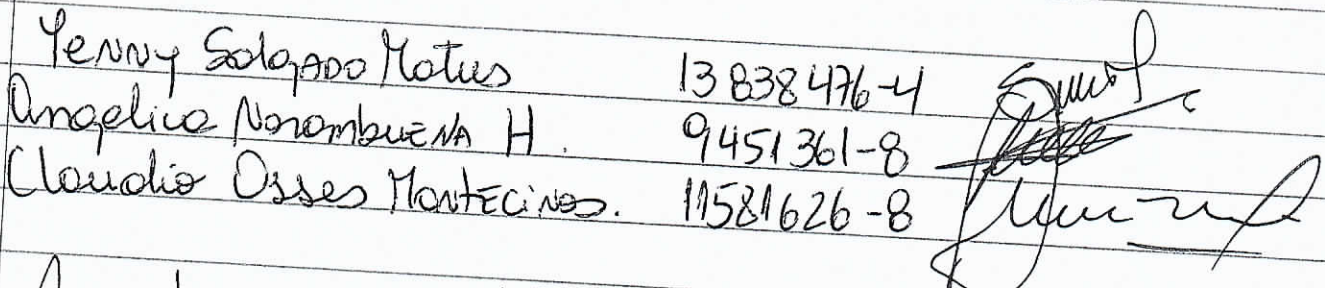 Yenny Salgado Matus 13838476-4
Angelica Norambuena H. 9451361-8
Claudio Osses Montecinos. 11581626-8